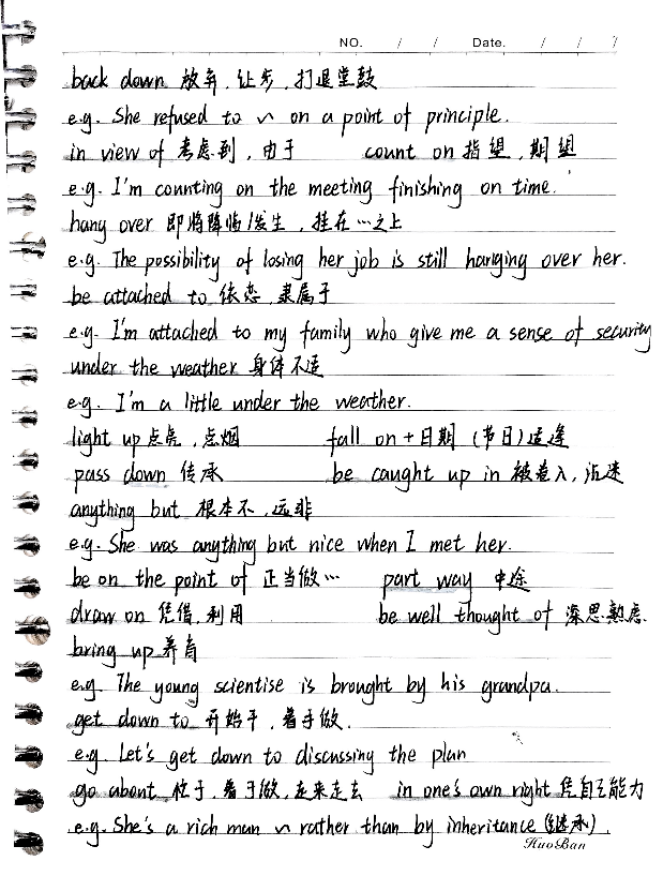 NO. / / Date. / / /
back down 放弃,让步,打退堂鼓
e.g. She refused to ~ on a point of principle.
in view of 考虑到,由于 count on 指望,期望
e.g. I'm counting on the meeting finishing on time.
hang over 即将降临/发生,挂在…之上
e.g. The possibility of losing her job is still hanging over her.
be attached to 依恋,隶属于
e.g. I'm attached to my family who give me a sense of security
under the weather 身体不适
e.g. I'm a little under the weather.
light up 点亮,点烟 fall on + 日期 (节日)适逢
pass down 传承 be caught up in 被卷入,沉迷
anything but 根本不,远非
e.g. She was anything but nice when I met her.
be on the point of 正当做… part way 中途
draw on 凭借,利用 be well thought of 深思熟虑
bring up 养育
e.g. The young scientise is brought by his grandpa.
get down to 开始干,着手做.
e.g. Let's get down to discussing the plan
go about 忙于,着手做,走来走去 in one's own right 凭自己能力
e.g. She's a rich man ~ rather than by inheritance (继承).
HuoBan